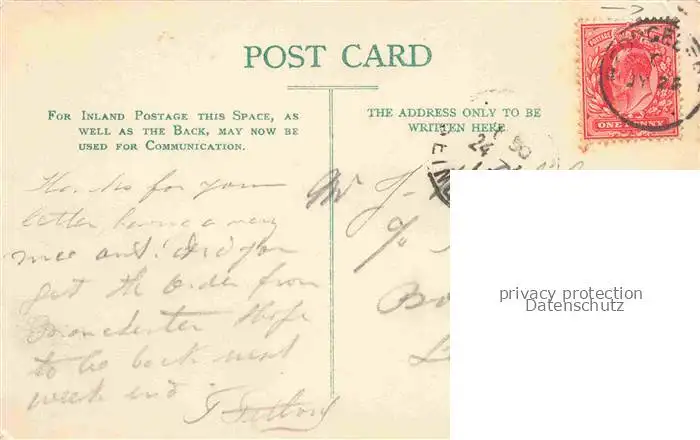 POST CARD
FOR INLAND POSTAGE THIS SPACE, AS
WELL AS THE BACK, MAY NOW BE
USED FOR COMMUNICATION.
THE ADDRESS ONLY TO BE
WRITTEN HERE.
POSTAGE
ONE PENNY
JY 25
24
Thanks for your
letter having a very
nice out. did you
get the order from
Manchester hope
to be back next
week end
Mr J.
c/o
privacy protection
Datenschutz